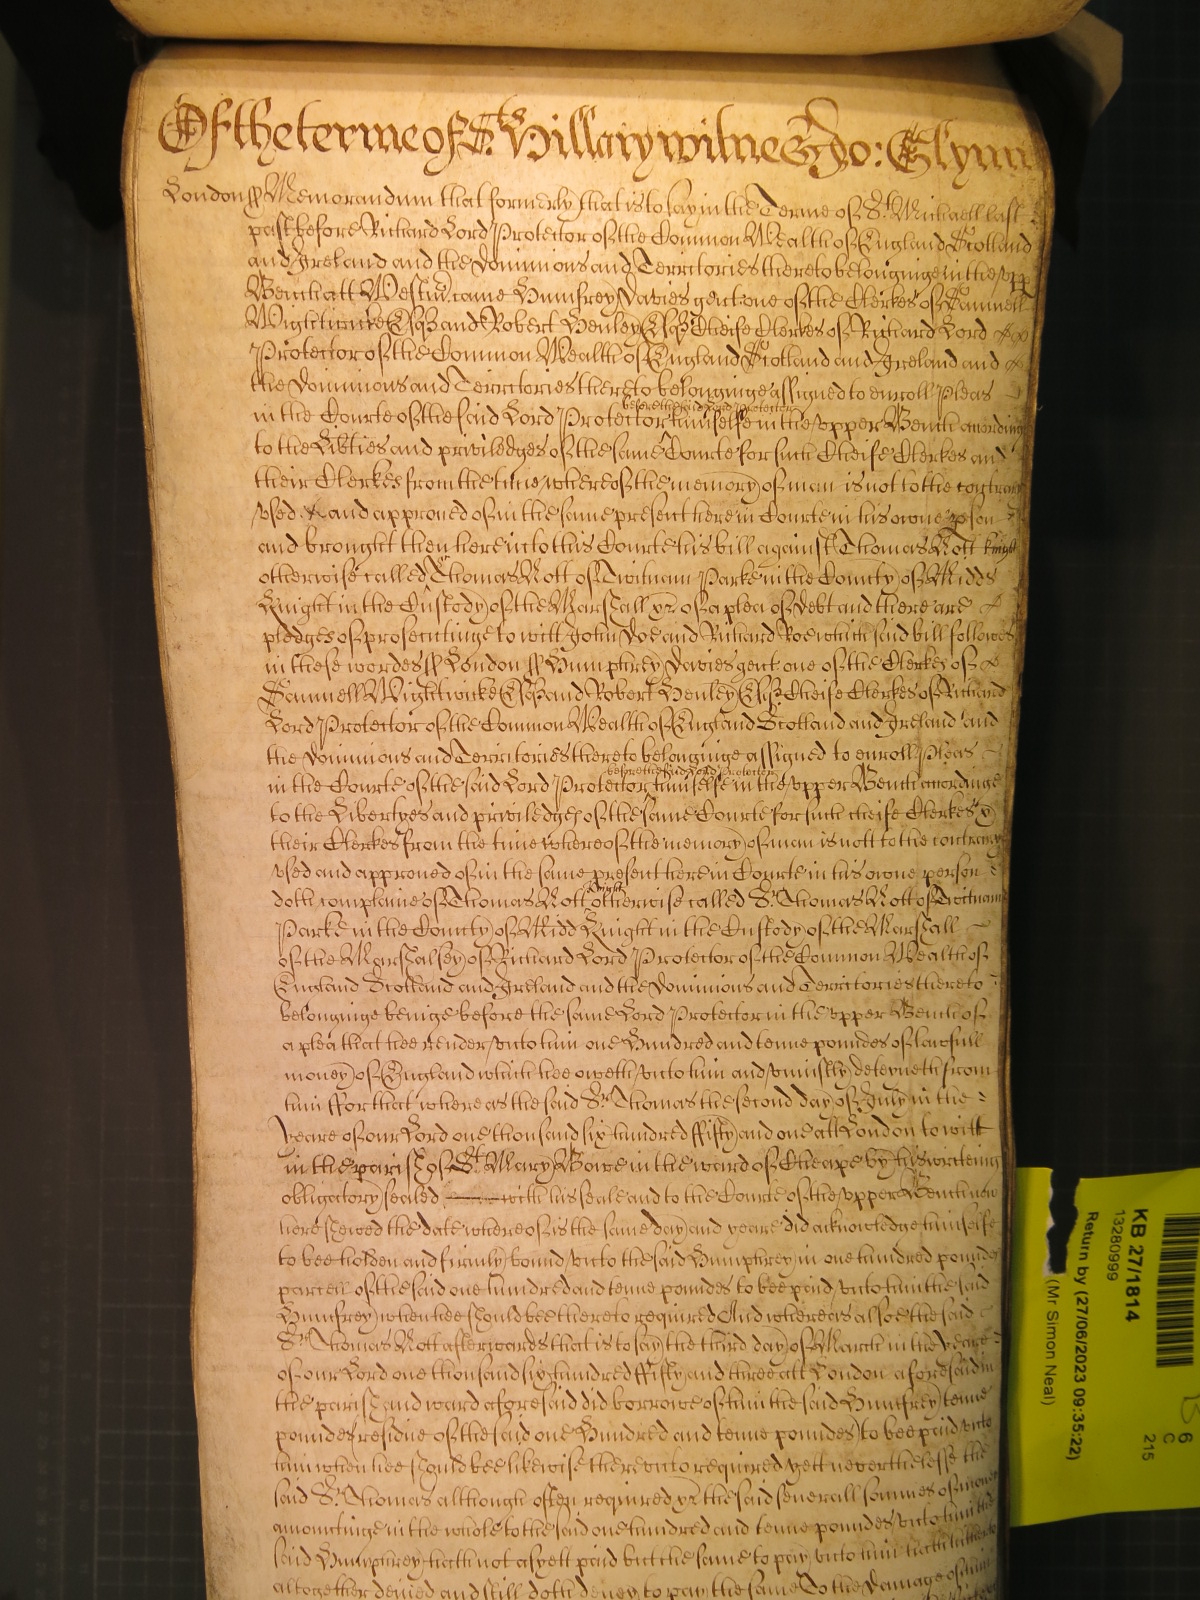 Of the terme of St. Hillary witnes Jo: Glynn
London ss Memorandum that formerly that is to say in the Terme of St. Michaell last
past before Richard Lord Protector of the Common Wealth of England Scotland
and Ireland and the Dominions and Territories thereto belonginge in the upp
Bench att Westm. came Humfrey Davies gent one of the Clerkes of Samuell
Wightwicke Esqr and Robert Henley Esqr Cheife Clerkes of Richard Lord
Protector of the Common Wealth of England Scotland and Ireland and
the Dominions and Territories thereto belonginge assigned to enroll Pleas
before the said Lord Protector
in the Courte of the said Lord Protector himselfe in the upper Bench accordinge
to the Libties and priviledges of the same Courte for such Cheife Clerkes and
their Clerkes from the time whereof the memory of man is not to the contrary
used and approved of in the same present here in Courte in his owne pson
and brought then here into this Courte his bill against Thomas Nott knight
otherwise called Sr Thomas Nott of Twitnam Parke in the County of Midds
Knight in the Custody of the Marshall &c of a plea of Debt and there are
pledges of prosecutinge to witt John Doe and Richard Roe which said bill followes
in these wordes ss London ss Humphrey Davies gent one of the Clerkes of
Samuell Wightwicke Esqr and Robert Henley Esqr Cheife Clerkes of Richard
Lord Protector of the Common Wealth of England Scotland and Ireland and
the Dominions and Territories thereto belonginge assigned to enroll Pleas
before the said Lord Protector
in the Courte of the said Lord Protector himselfe in the upper Bench accordinge
to the Libertyes and priviledges of the same Courte for such cheife Clerkes &
their Clerkes from the time whereof the memory of man is nott to the contrary
used and approved of in the same present here in Courte in his owne person
knight
doth complaine of Thomas Nott otherwise called Sr. Thomas Nott of Twitnam
Parke in the County of Midd Knight in the Custody of the Marshall
of the Marshalsey of Richard Lord Protector of the Common Wealth of
England Scotland and Ireland and the Dominions and Territories thereto
belonginge beinge before the same Lord Protector in the upper Bench of
a plea that hee render unto him one Hundred and tenne poundes of lawfull
money of England which hee oweth unto him and uniustly deteyneth from
him ffor that whereas the said Sr. Thomas the second day of July in the
yeare of our Lord one thousand six hundred fifty and one att London to witt
in the parish of St. Mary Bowe in the ward of Cheape by his writeing
obligatory sealed with his seale and to the Courte of the upper Bench now
here shewed the date whereof is the same day and yeare did acknowledge himselfe
to bee holden and firmly bound unto the said Humphrey in one hundred poundes
parcell of the said one hundred and tenne poundes to bee paid unto him the said
Humfrey when hee should bee thereto required And whereas alsoe the said
Sr. Thomas Nott afterwardes that is to say the third day of March in the yeare
of our Lord one thousand six hundred fifty and three att London aforesaid in
the parish and ward aforesaid did borrowe of him the said Humfrey tenne
poundes residue of the said one Hundred and tenne poundes to bee paid unto
him when hee should bee likewise thereunto required yett neverthelesse the
said Sr. Thomas although often required &c the said severall summes of money
amountinge in the whole to the said one hundred and tenne poundes unto him the
said Humphrey hath not as yett paid but the same to pay unto him hath hitherto
altogether denied and still doth deney to pay the same To the damage of him
KB 27/1814
13280999
Return by (27/06/2023 09:35:22)
(Mr Simon Neal)
6
C
215